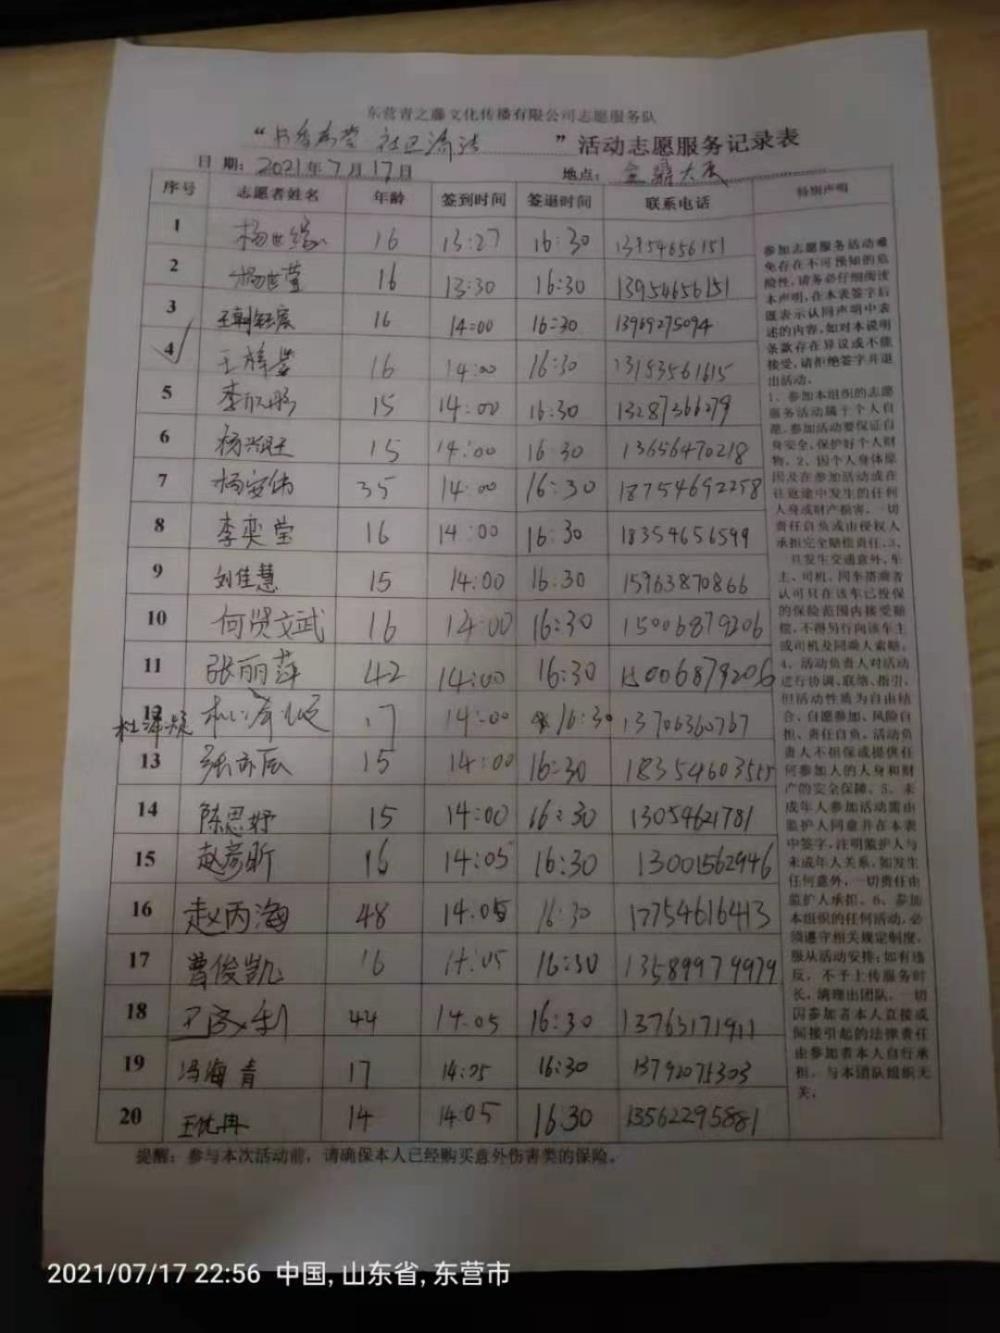 东营青之藤文化传播有限公司志愿服务队
“书香希望 社区清洁”活动志愿服务记录表
日期：2021年7月17日 地点：金鼎大厦
序号 志愿者姓名 年龄 签到时间 签退时间 联系电话 特别声明
1 杨世缘 16 13:27 16:30 13954656151
2 杨世莹 16 13:30 16:30 13954656151
3 16 14:00 16:30 13969275094
4 16 14:00 16:30 13153561615
5 15 14:00 16:30 13287366279
6 15 14:00 16:30 13656470218
7 杨安伟 35 14:00 16:30 18754692258
8 李奕莹 16 14:00 16:30 18354656599
9 刘佳慧 15 14:00 16:30 15963870866
10 何贤文武 16 14:00 16:30 15006879206
11 张丽萍 42 14:00 16:30 15006879206
12 17 14:00 16:30 13706360767
13 15 14:00 16:30 183546035
14 陈思妤 15 14:00 16:30 13054621781
15 赵彦昕 16 14:05 16:30 13001562946
16 赵丙海 48 14:05 16:30 17754616413
17 曹俊凯 16 14:05 16:30 13589979979
18 44 14:05 16:30 13763171911
19 冯海青 17 14:05 16:30 13792075303
20 14 14:05 16:30 13562295881
参加志愿服务活动难
免存在不可预知的危
险性，请务必仔细阅读
本声明，在本表签字后
既表示认同声明中表
述的内容，如对本说明
条款存在异议或不能
接受，请拒绝签字并退
出活动。
1、参加本组织的志愿
服务活动属于个人自
愿，参加活动要保证自
身安全，保护好个人财
物。2、因个人身体原
因及在参加活动或在
往返途中发生的任何
人身或财产损害，一切
责任自负或由侵权人
承担完全赔偿责任。3、
一旦发生交通意外，车
主、司机、同车搭乘者
认可只在该车已投保
的保险范围内接受赔
偿，不得另行向该车主
或司机及同乘人索赔。
4、活动负责人对活动
进行协调、联络、指引，
但活动性质为自由结
合、自愿参加、风险自
担、责任自负，活动负
责人不担保或提供任
何参加人的人身和财
产的安全保障。5、未
成年人参加活动需由
监护人同意并在本表
中签字，注明监护人与
未成年人关系，如发生
任何意外，一切责任由
监护人承担。6、参加
本组织的任何活动，必
须遵守相关规定制度，
服从活动安排；如有违
反，不予上传服务时
长，清理出团队。一切
因参加者本人直接或
间接引起的法律责任
由参加者本人自行承
担，与本团队组织无
关。
提醒：参与本次活动前，请确保本人已经购买意外伤害类的保险。
2021/07/17 22:56 中国, 山东省, 东营市